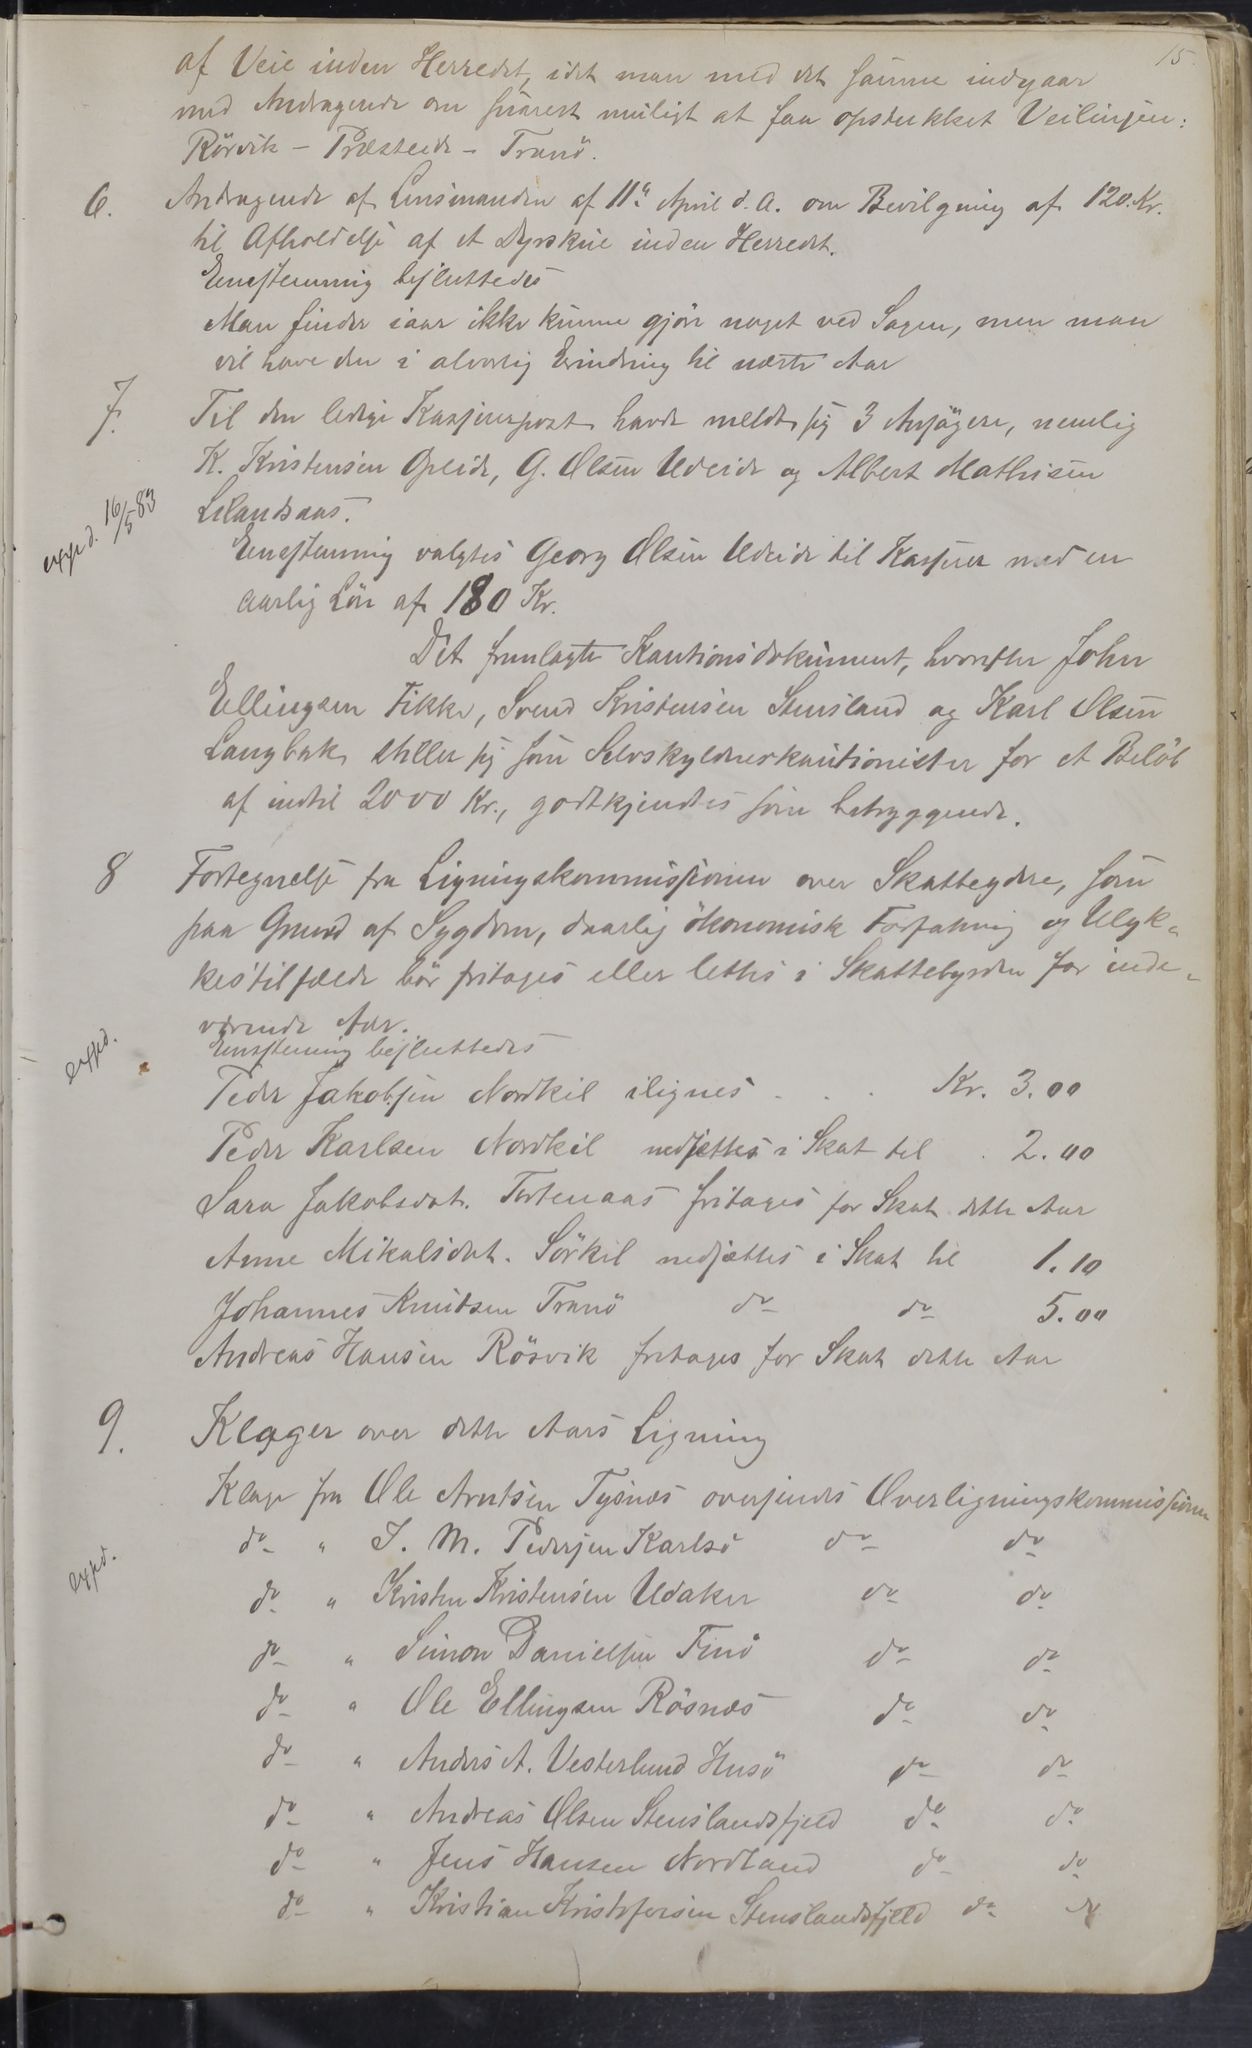 15.
af Veie inden Herredet, idet man med det samme indgaar
med Andragende om snarest muligt at faa opstukket Veilinjen:
Rörvik - Præsteide - Tranö.
6. Andragende af Lensmanden af 11te April d. A. om Bevilgning af 120 Kr.
til Afholdelse af et Dyrskue inden Herredet.
Eenstemmig besluttedes
Man finder iaar ikke kunne gjöre noget ved Sagen, men man
vil have den i alvorlig Erindring til næste Aar
7. Til den ledige Kassererpost havde meldt sig 3 Ansögere, nemlig
K. Kristensen Opeide, G. Olsen Udeide og Albert Mathisen
Lilandsaas.
expd. 16/5 83
Eenstemmig valgtes Georg Olsen Udeide til Kasserer med en
aarlig Lön af 180 Kr.
Det fremlagte Kautionsdokument, hvorefter John
Ellingsen Fikke, Svend Kristensen Stensland og Karl Olsen
Langbak stiller sig som Selvskyldnerkautionister for et Belöb
af indtil 2000 Kr., godtkjendtes som betryggende.
8 Fortegnelse fra Ligningskommissionen over Skatteydere, som
paa Grund af Sygdom, daarlig ökonomisk Forfatning og Ulyk-
kestilfælde bör fritages eller lettes i Skattebyrden for inde-
værende Aar.
expd.
Eenstemmig besluttedes
Peder Jakobsen Nordkil ilignes . . . Kr. 3.00
Peder Karlsen Nordkil nedsættes i Skat til . 2.00
Sara Jakobsdat. Tortenaas fritages for Skat dette Aar
Anne Mikalsdat. Sörkil nedsættes i Skat til 1.10
Johannes Knutsen Tranö do do 5.00
Andreas Hansen Rösvik fritages for Skat dette Aar
9. Klager over dette Aars Ligning
Klage fra Ole Arntsen Tysnes oversendes Overligningskommissionen
do " J. M. Pedersen Karlsö do do
expd.
do " Kristen Kristensen Udaker do do
do " Simon Danielsen Finö do do
do " Ole Ellingsen Rösnæs do do
do " Anders A. Vesterlund Husö do do
do " Andreas Olsen Stenslandsfjeld do do
do " Jens Hansen Nordland do do
do " Kristian Kristofersen Stenslandsfjeld do do